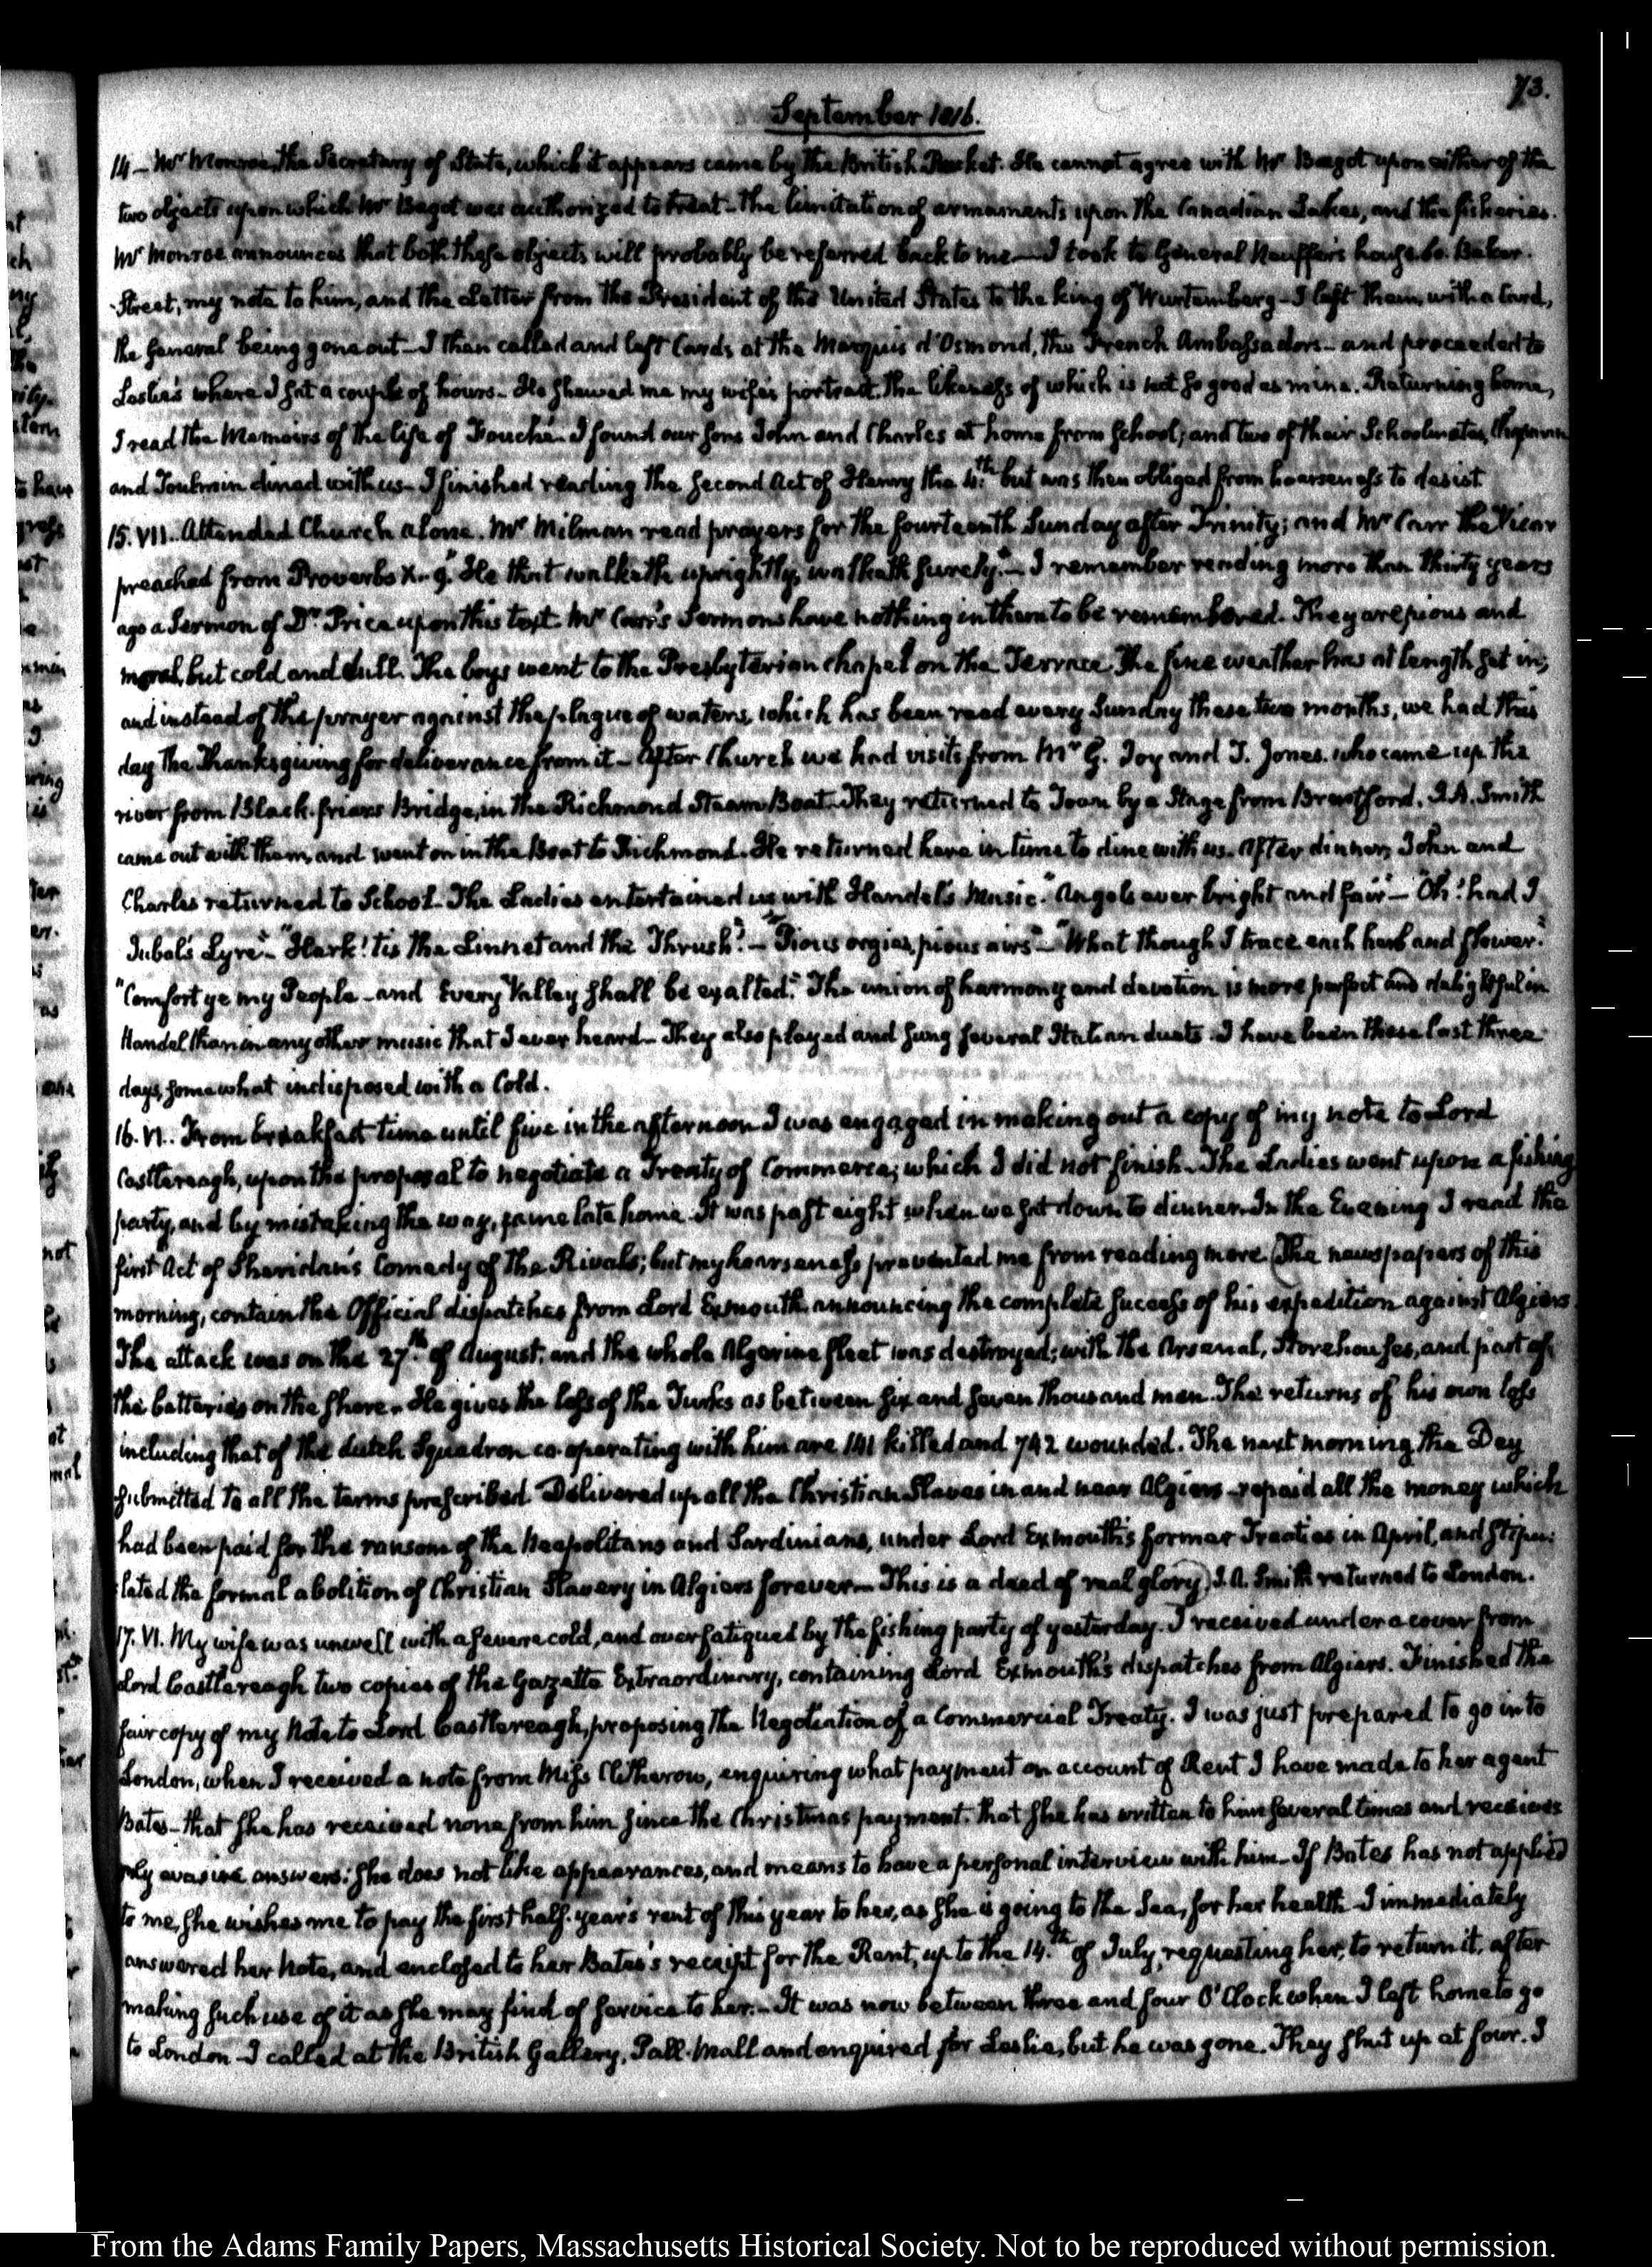 73.
September 1816.
14 – Mr Monroe, the Secretary of State, which it appears came by the British Packet. He cannot agree with Mr Bagot upon either of the
two objects upon which Mr Bagot was authorized to treat – The limitation of armaments upon the Canadian Lakes, and the fisheries.
Mr Monroe announces that both these objects will probably be referred back to me – I took to General Neuffer's house 60. Baker
Street, my note to him, and the Letter from the President of the United States to the king of Wurtemberg – I left them, with a Card,
the General being gone out – I then called and left Cards at the Marquis d'Osmond, the French Ambassadors – and proceeded to
Leslie's where I sat a couple of hours – He shewed me my wife's portrait, the likeness of which is not so good as mine. Returning home,
I read the Memoirs of the life of Fouché – I found our Sons John and Charles at home from School; and two of their Schoolmates,
and Toulmin dined with us – I finished reading the second Act of Henry the 4th but was then obliged from hoarseness to desist
15. VII. Attended Church alone. Mr Milman read prayers for the fourteenth Sunday after Trinity; and Mr Carr the Vicar
preached from Proverbs X. 9. "He that walketh uprightly, walketh surely." – I remember reading more than thirty years
ago a Sermon of Dr Price upon this text. Mr Carr's Sermons have nothing in them to be remembered. They are pious and
moral, but cold and dull. The boys went to the Presbyterian chapel on the Terrace. The fine weather has at length set in;
and instead of the prayer against the plague of waters, which has been read every Sunday these two months, we had this
day the Thanksgiving for deliverance from it – After Church we had visits from Mr G. Joy and T. Jones. who came up the
river from Black-friars Bridge, in the Richmond Steam Boat. They returned to Town by a Stage from Brentford. J. A. Smith
came out with them, and went on in the Boat to Richmond. He returned here in time to dine with us. After dinner, John and
Charles returned to School. The Ladies entertained us with Handel's Music. "Angels ever bright and fair" – "Oh! had I
Jubal's Lyre" – "Hark! tis the Linnet and the Thrush" – "Pious orgies, pious airs" – "What though I trace each herb and flower."
"Comfort ye my People – and Every Valley shall be exalted." The union of harmony and devotion is more perfect and delightful in
Handel than in any other music that I ever heard – They also played and sung several Italian duets. I have been these last three
days, somewhat indisposed with a Cold.
16. VI. From breakfast time until five in the afternoon I was engaged in making out a copy of my note to Lord
Castlereagh, upon the proposal to negotiate a Treaty of Commerce; which I did not finish – The Ladies went upon a fishing
party, and by mistaking the way, came late home. It was past eight when we sat down to dinner. In the Evening I read the
first Act of Sheridan's Comedy of the Rivals; but my hoarseness prevented me from reading more (The newspapers of this
morning, contain the Official dispatches from Lord Exmouth, announcing the complete success of his expedition against Algiers
The attack was on the 27th of August, and the whole Algerine fleet was destroyed; with the Arsenal, Storehouses, and part of
the batteries on the shore. He gives the loss of the Turks as between six and seven thousand men. The returns of his own loss
including that of the dutch Squadron co-operating with him are 141 killed and 742 wounded. The next morning the Dey
submitted to all the terms prescribed. Delivered up all the Christian Slaves in and near Algiers – repaid all the money which
had been paid for the ransom of the Neapolitans and Sardinians, under Lord Exmouth's former Treaties in April, and stipu-
lated the formal abolition of Christian Slavery in Algiers forever – This is a deed of real glory) J. A. Smith returned to London.
17. VI. My wife was unwell with a severe cold, and over fatigued by the fishing party of yesterday. I received under a cover from
Lord Castlereagh two copies of the Gazette Extraordinary, containing Lord Exmouth's dispatches from Algiers. Finished the
fair copy of my Note to Lord Castlereagh, proposing the Negotiation of a Commercial Treaty. I was just prepared to go into
London, when I received a note from Miss Clitherow, enquiring what payment on account of Rent I have made to her agent
Bates – that she has received none from him since the Christmas payment. that she has written to him several times and receives
only evasive answers: she does not like appearances, and means to have a personal interview with him – If Bates has not applied
to me, she wishes me to pay the first half-year's rent of this year to her, as she is going to the Sea, for her health – I immediately
answered her Note, and enclosed to her Bates's receipt for the Rent, up to the 14th of July, requesting her, to return it, after
making such use of it as she may find of service to her. – It was now between three and four O'Clock when I left home to go
to London – I called at the British Gallery, Pall-Mall and enquired for Leslie, but he was gone. They shut up at four. I
From the Adams Family Papers, Massachusetts Historical Society. Not to be reproduced without permission.